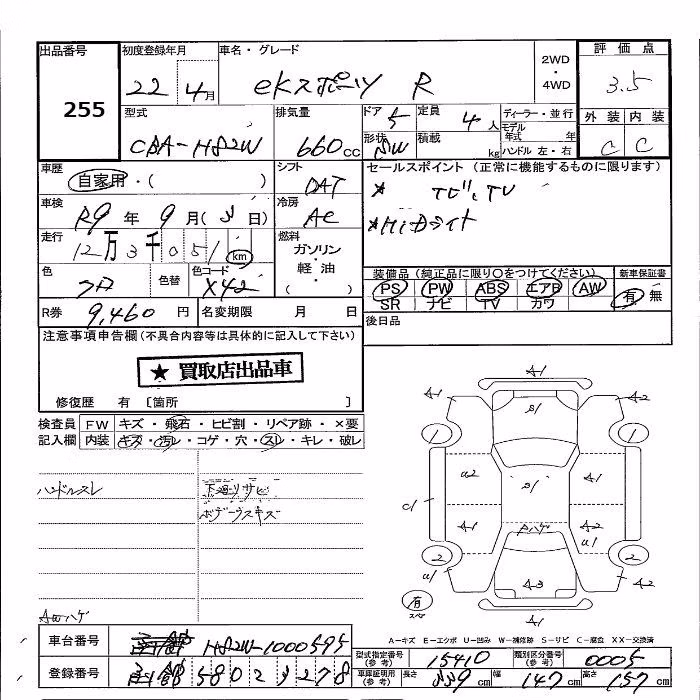 出品番号 初度登録年月 車名・グレード 2WD・4WD 評価点
255 22年 4月 eKスポーツ R 3.5
型式 排気量 ドア 5 定員 4人 ディーラー・並行 外装 内装
CBA-H82W 660cc 形状 SW 積載 kg モデル年式 年 C C
ハンドル 左・右
車歴 シフト セールスポイント (正常に機能するものに限ります)
自家用・( ) DAT ★ TV
車検 R9年 9月( 日) 冷房 AC ★HiDライト
走行 12万3千051 km 燃料 ガソリン・軽油・( )
装備品 (純正品に限り○をつけてください) 新車保証書
色 色替 色コード X42 PS PW ABS エアB AW 有 無
SR ナビ TV カワ
R券 9,460円 名変期限 月 日 後日品
注意事項申告欄 (不具合内容等は具体的に記入して下さい)
★ 買取店出品車
修復歴 有 〔箇所 〕
検査員 FW キズ・飛石・ヒビ割・リペア跡・×要
記入欄 内装 キズ・汚レ・コゲ・穴・スレ・キレ・破レ
ハンドルスレ 下廻リサビ
ボデーウスキズ
AWハゲ
A1
A1 A2
S1
1 1
A2 S1
C1
A1 ハゲ A2
U1
2 2
U1 A3 A2
有 スペア
A1
A-キズ E-エクボ U-凹み W-補修跡 S-サビ C-腐食 XX-交換済
車台番号 H82W-1000595 型式指定番号 (参考) 15410 類別区分番号 (参考) 0005
登録番号 580 278 車庫証明用 (参考) 長さ 339cm 幅 147cm 高さ 157cm